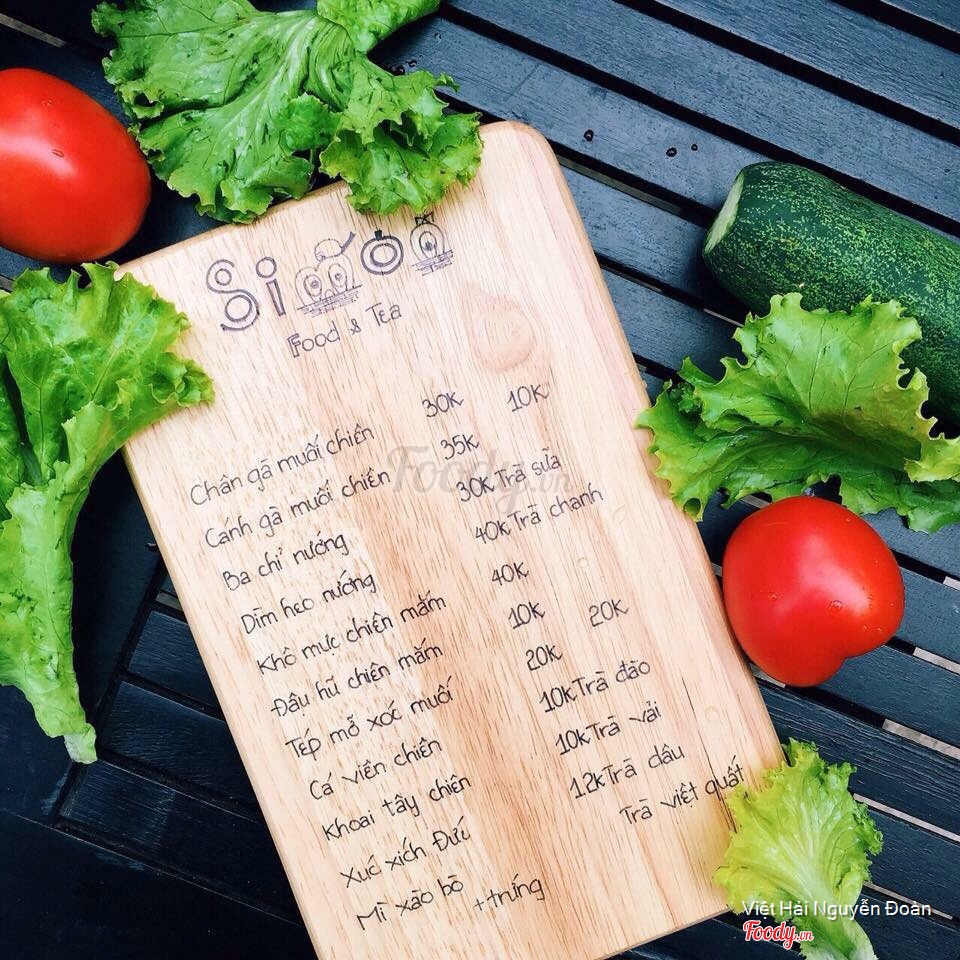 Simon
Food & Tea
Chân gà muối chiên 30K 10K
Cánh gà muối chiên 35K
Ba chỉ nướng 30K Trà sữa
Dĩm heo nướng 40K Trà chanh
Khô mực chiên mắm 40K
Đậu hũ chiên mắm 10K 20K
Tép mỡ xóc muối 20K
Cá viên chiên 10K Trà đào
Khoai tây chiên 10K Trà vải
Xúc xích Đức 12K Trà dâu
Mì xào bò Trà việt quất
+ trứng
Foody.vn
Việt Hải Nguyễn Đoàn
Foody.vn